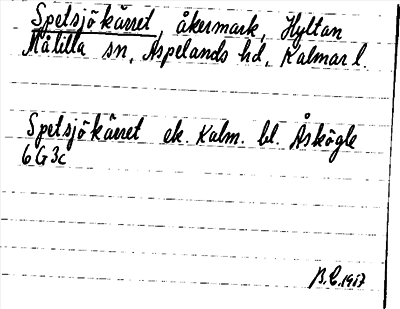 Spetsjökärret, åkermark, Hyltan
Målilla sn, Aspelands hd, Kalmar l.
Spetsjökärret ek. Kalm. bl. Åskögle
6G3c
B.E. 1967